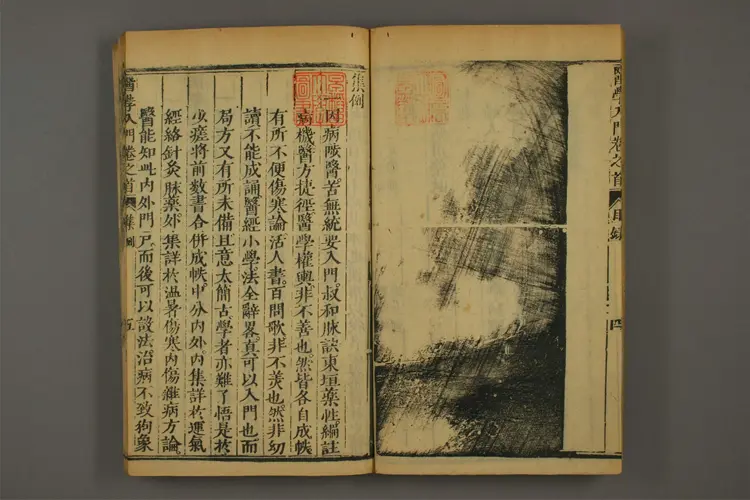 醫學入門卷之首 目錄 四
集例
因病陟醫苦無統要入門叔和脉訣東垣藥性編註
病機醫方捷徑醫學權輿非不善也然皆各自成帙
有所不便傷寒論活人書百問歌非不美也然非幼
讀不能成誦醫經小學法全辭畧真可以入門也而
局方又有所未備且意太簡古學者亦難了悟是於
少瘥將前數書合併成帙中分內外內集詳於運氣
經絡針灸脉藥外集詳於温暑傷寒內傷雜病方論
醫能知此內外門戶而後可以設法治病不致徇象
醫學入門卷之首 集例 五